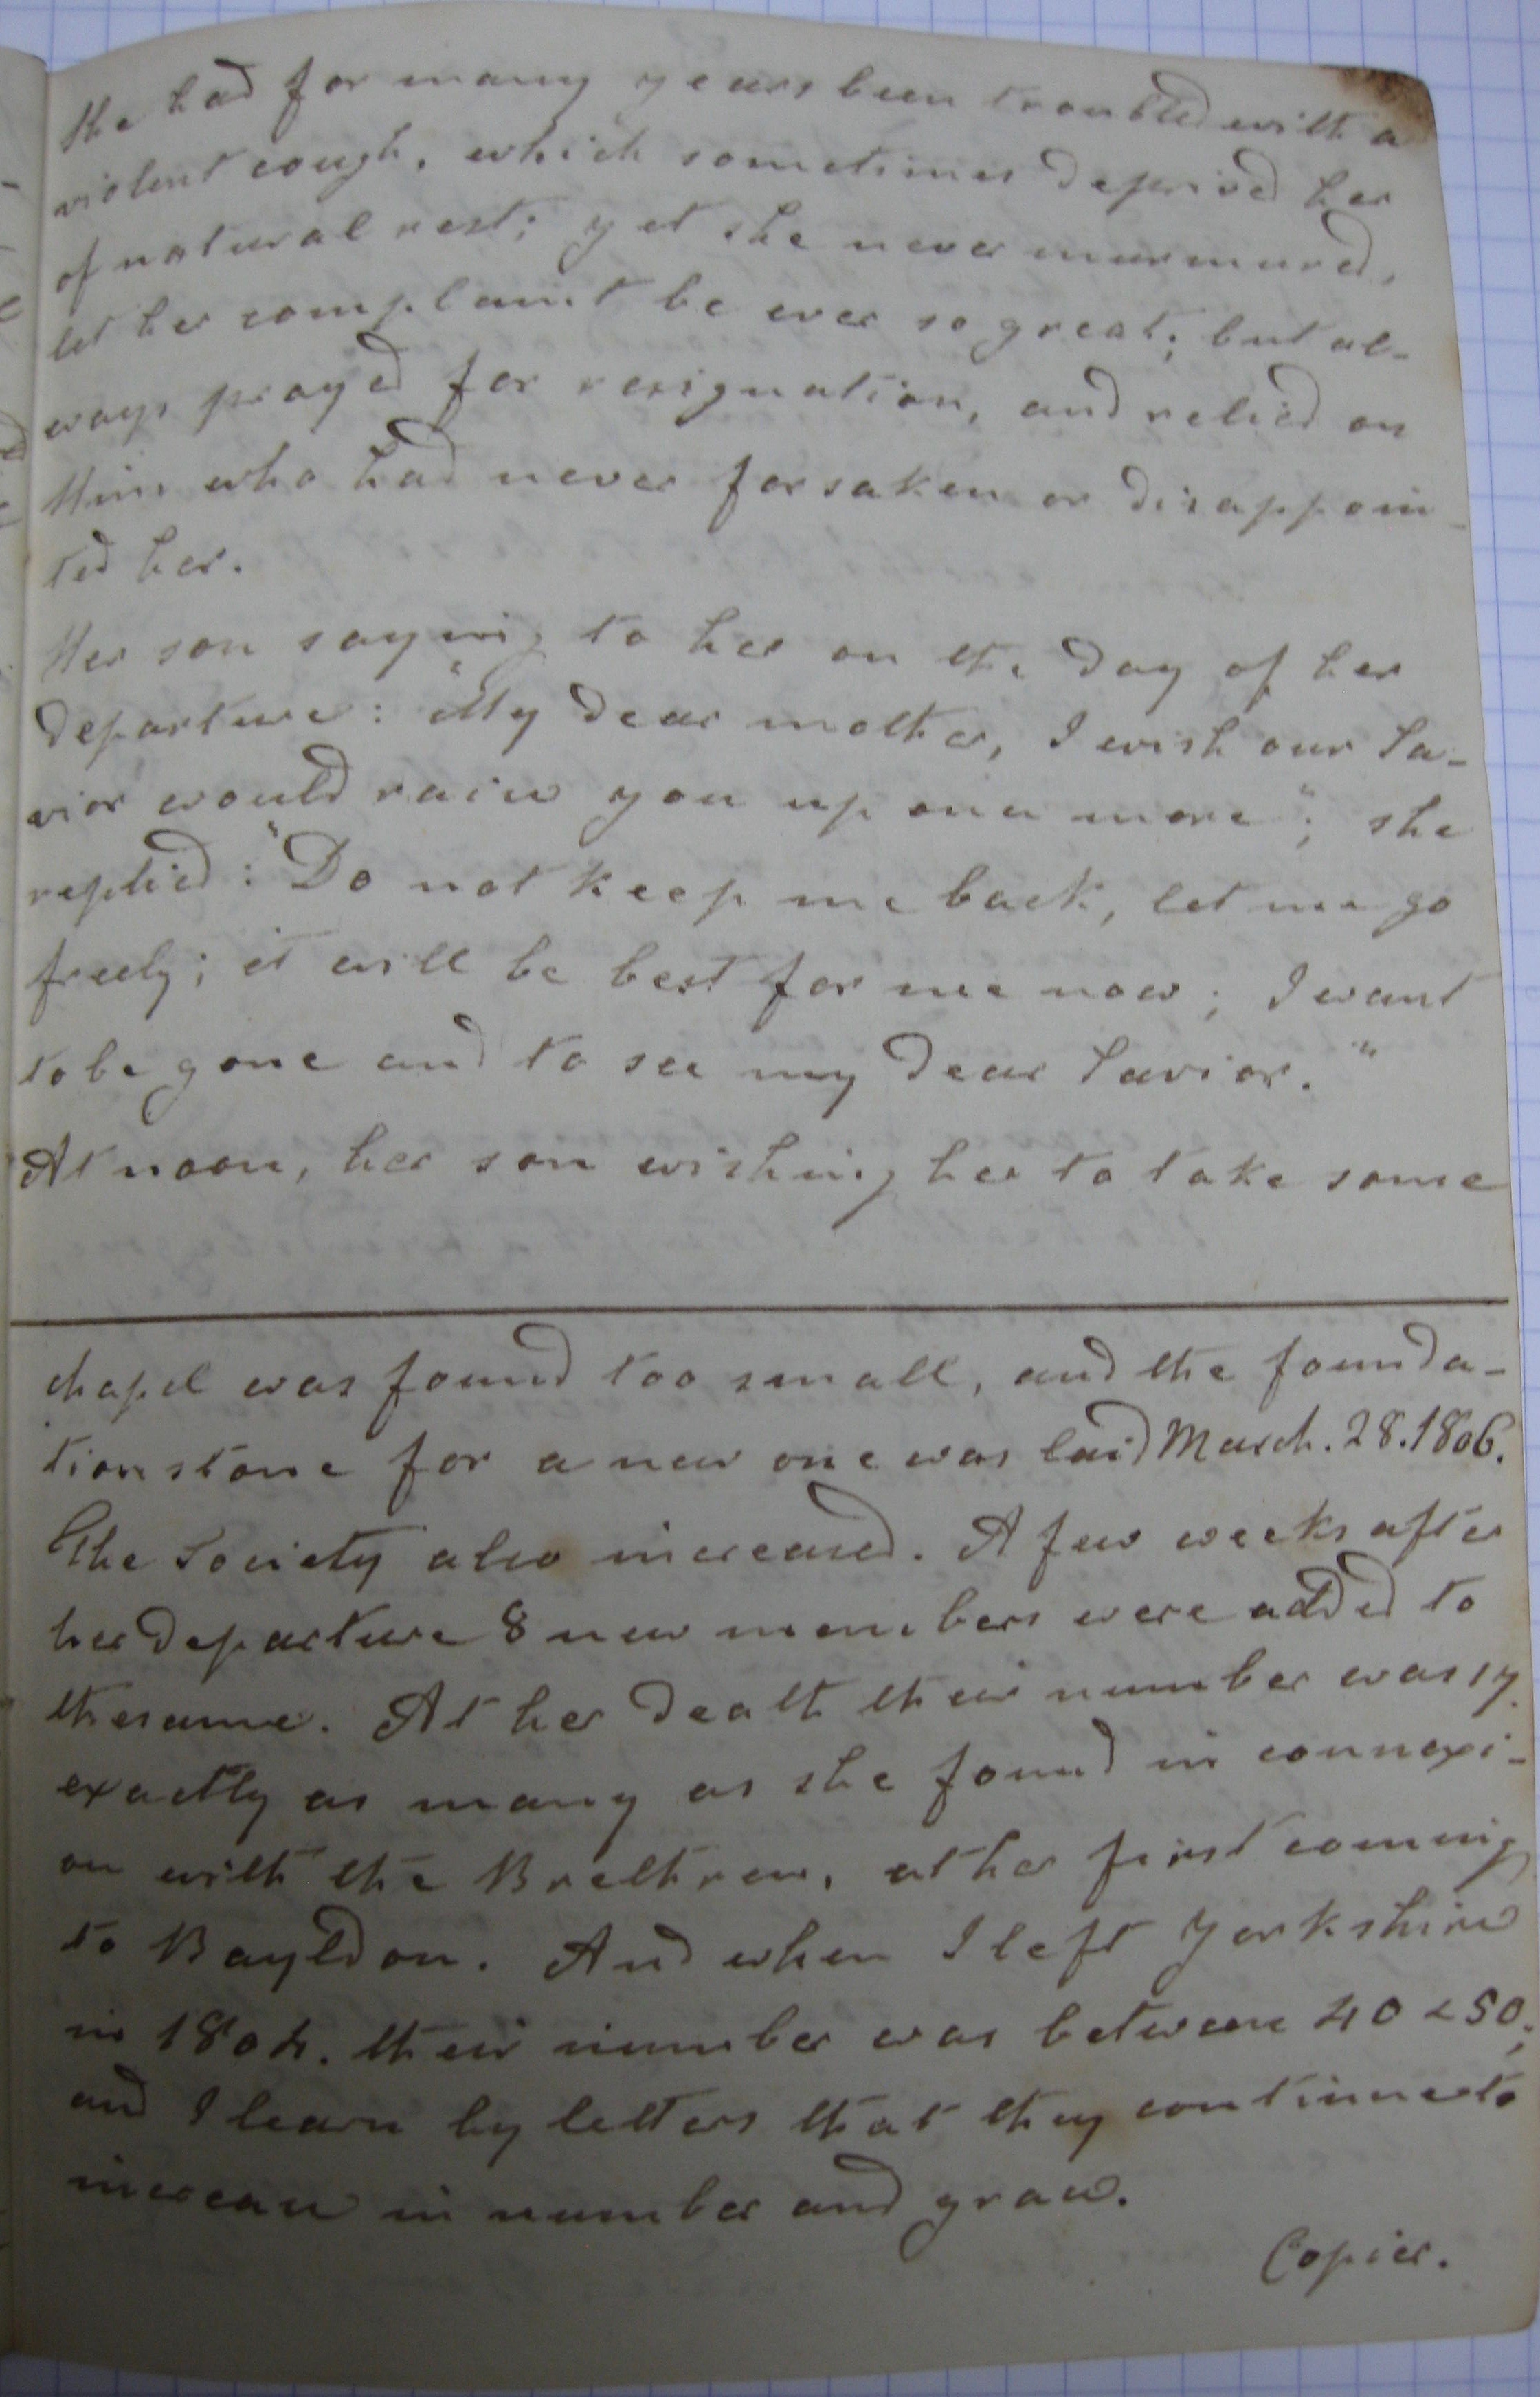 She had for many years been troubled with a
violent cough, which sometimes deprived her
of natural rest; yet she never murmured,
let her complaint be ever so great; but al-
ways prayed for resignation, and relied on
Him who had never forsaken or disappoin-
ted her.
Her son saying to her on the day of her
departure: "My dear mother, I wish our Sa-
vior would raise you up once more"; she
replied: "Do not keep me back, let me go
freely; it will be best for me now; I want
to be gone and to see my dear Savior."
At noon, her son wishing her to take some
chapel was found too small, and the founda-
tion stone for a new one was laid March. 28. 1806.
The Society also increased. A few weeks after
her departure 8 new members were added to
the same. At her death their number was 17.
exactly as many as she found in connexi-
on with the Brethren, at her first coming
to Bayldon. And when I left Yorkshire
in 1804. their number was between 40 & 50;
and I learn by letters that they continue to
increase in number and grace.
Copier.